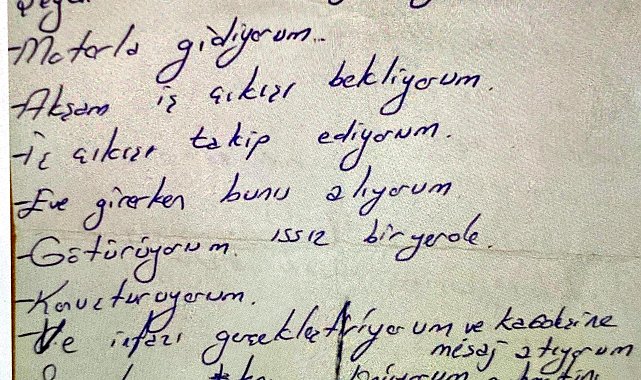 -Motorla gidiyorum..
-Akşam iş çıkışı bekliyorum.
-İş çıkışı takip ediyorum.
-Eve girerken bunu alıyorum
-Götürüyorum. ıssız bir yerde.
-Konuşturuyorum.
-Ve infazı gerçekleştiriyorum ve
mesaj atıyorum